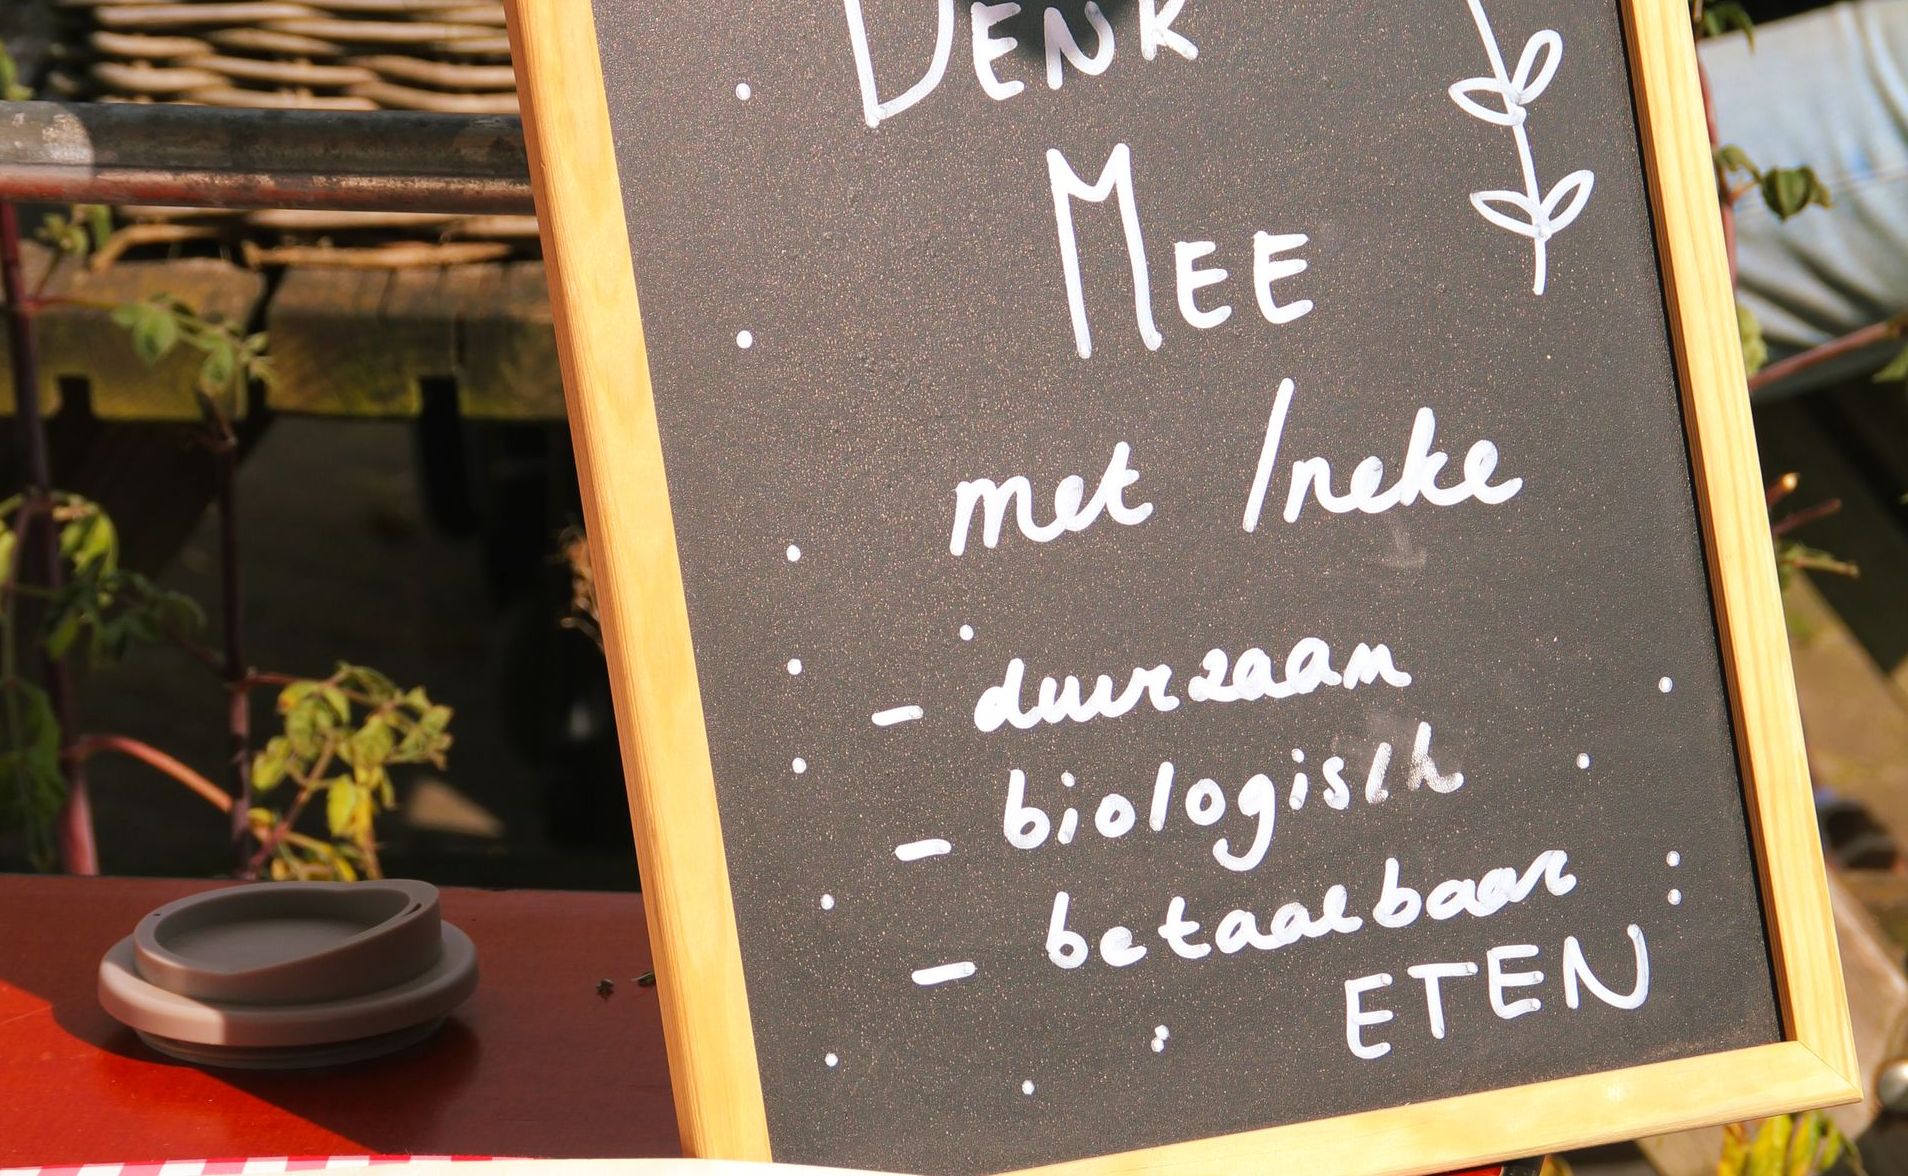 DENK
MEE
met Ineke
- duurzaam
- biologisch
- betaalbaar
ETEN